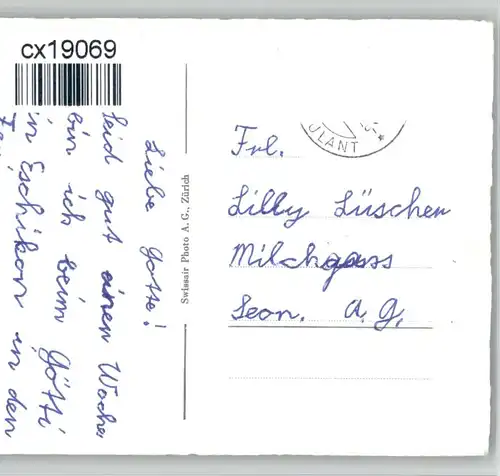 cx19069
Liebe Gotte!
Seid gut einen Woche
bin ich beim Götti
in Eschikon in den
Swissair Photo A. G., Zürich
ULANT
Frl.
Lilly Lüscher
Milchgass
Seon. A. G.